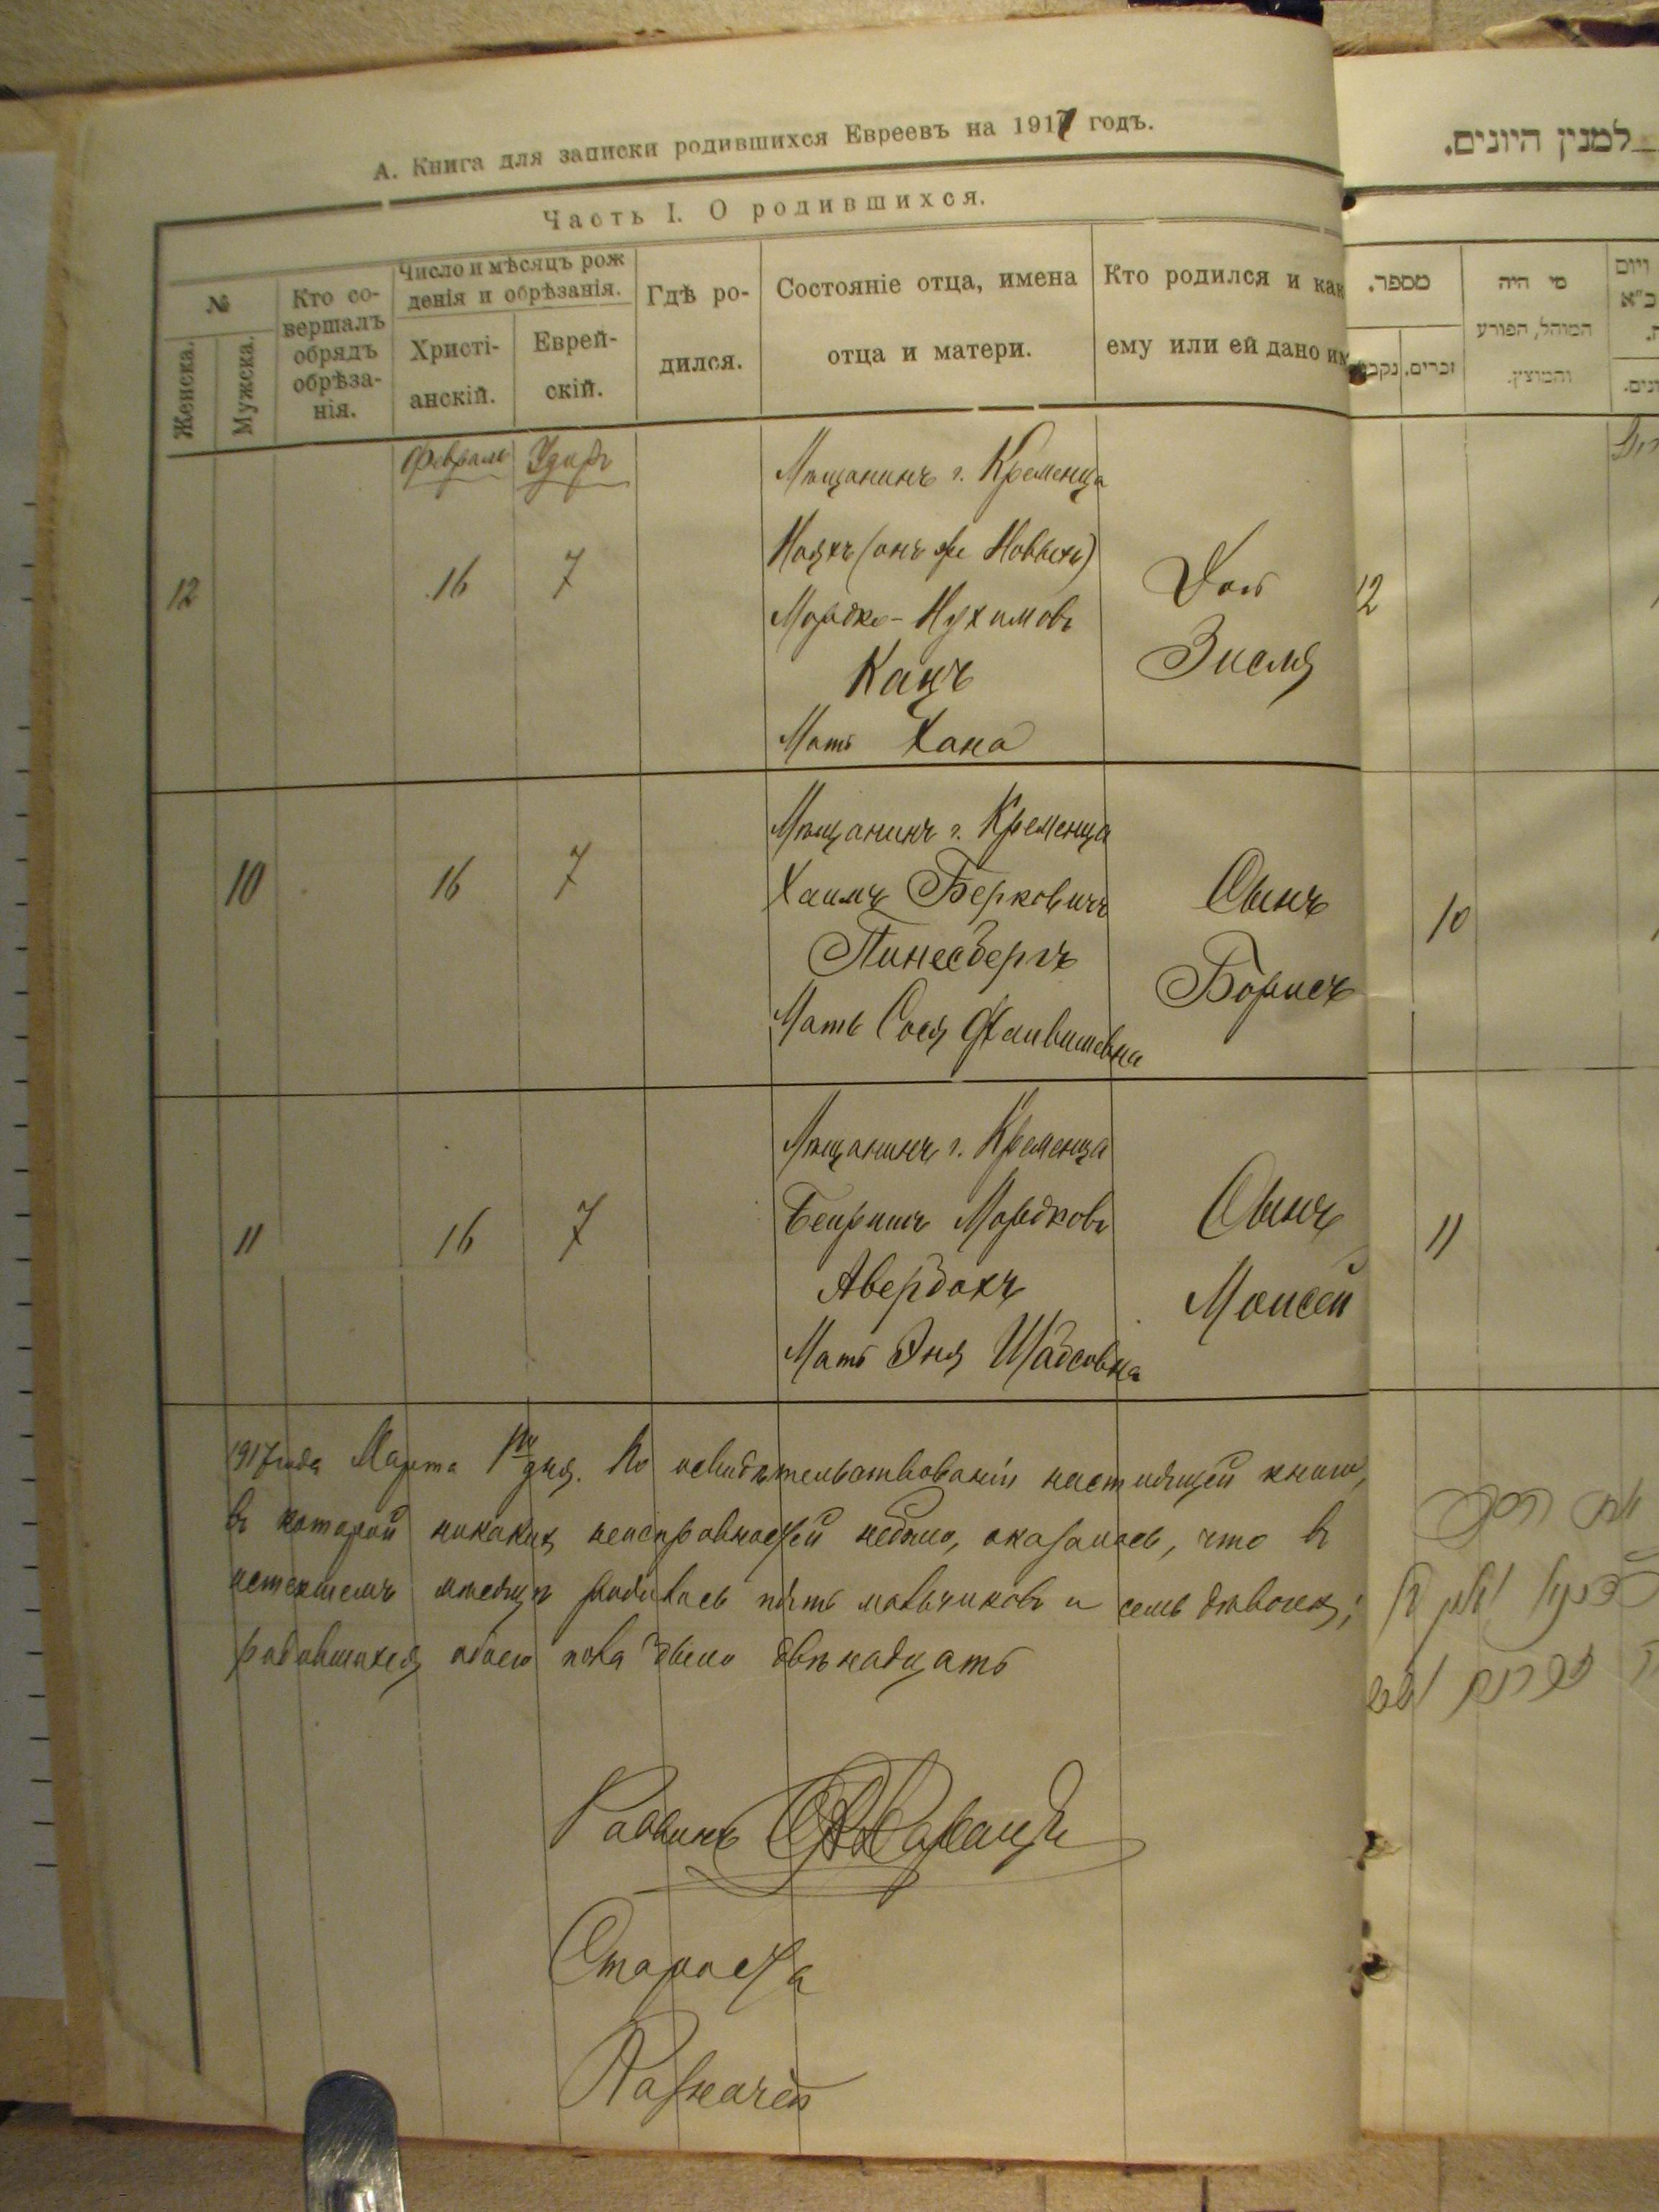 А. Книга для записки родившихся Евреевъ на 1917 годъ.
Часть I. О родившихся.
№
Женска.
Мужска.
Кто со-
вершалъ
обрядъ
обрѣза-
нія.
Число и мѣсяцъ рож
денія и обрѣзанія.
Христі-
анскій.
Еврей-
скій.
Гдѣ ро-
дился.
Состояніе отца, имена
отца и матери.
Кто родился и как
ему или ей дано им
Февраль
Адаръ
12
16
7
Мѣщанинъ г. Кременца
(онъ же
Мордко-Нухимовъ
Кацъ
Мать Хана
Дочь
Зисля
10
16
7
Мѣщанинъ г. Кременца
Хаимъ Берковичъ
Пинесбергъ
Мать Сося Файвишевна
Сынъ
Борисъ
11
16
7
Мѣщанинъ г. Кременца
Бейришъ Мордковъ
Авербахъ
Мать Эня
Сынъ
Моисей
1917 года Марта 1го дня. По освидѣтельствованіи настоящей книги,
въ которой никакихъ неисправностей небыло, оказалось, что въ
истекшемъ мѣсяцѣ родилось пять мальчиковъ и семь дѣвочекъ;
родившихся обоего пола было двѣнадцать
Раввинъ
Староста
Казначей
למנין היונים.
מספר.
זכרים.
מי היה
המוהל, הפורע
והמוצץ.
ויום
12
10
11